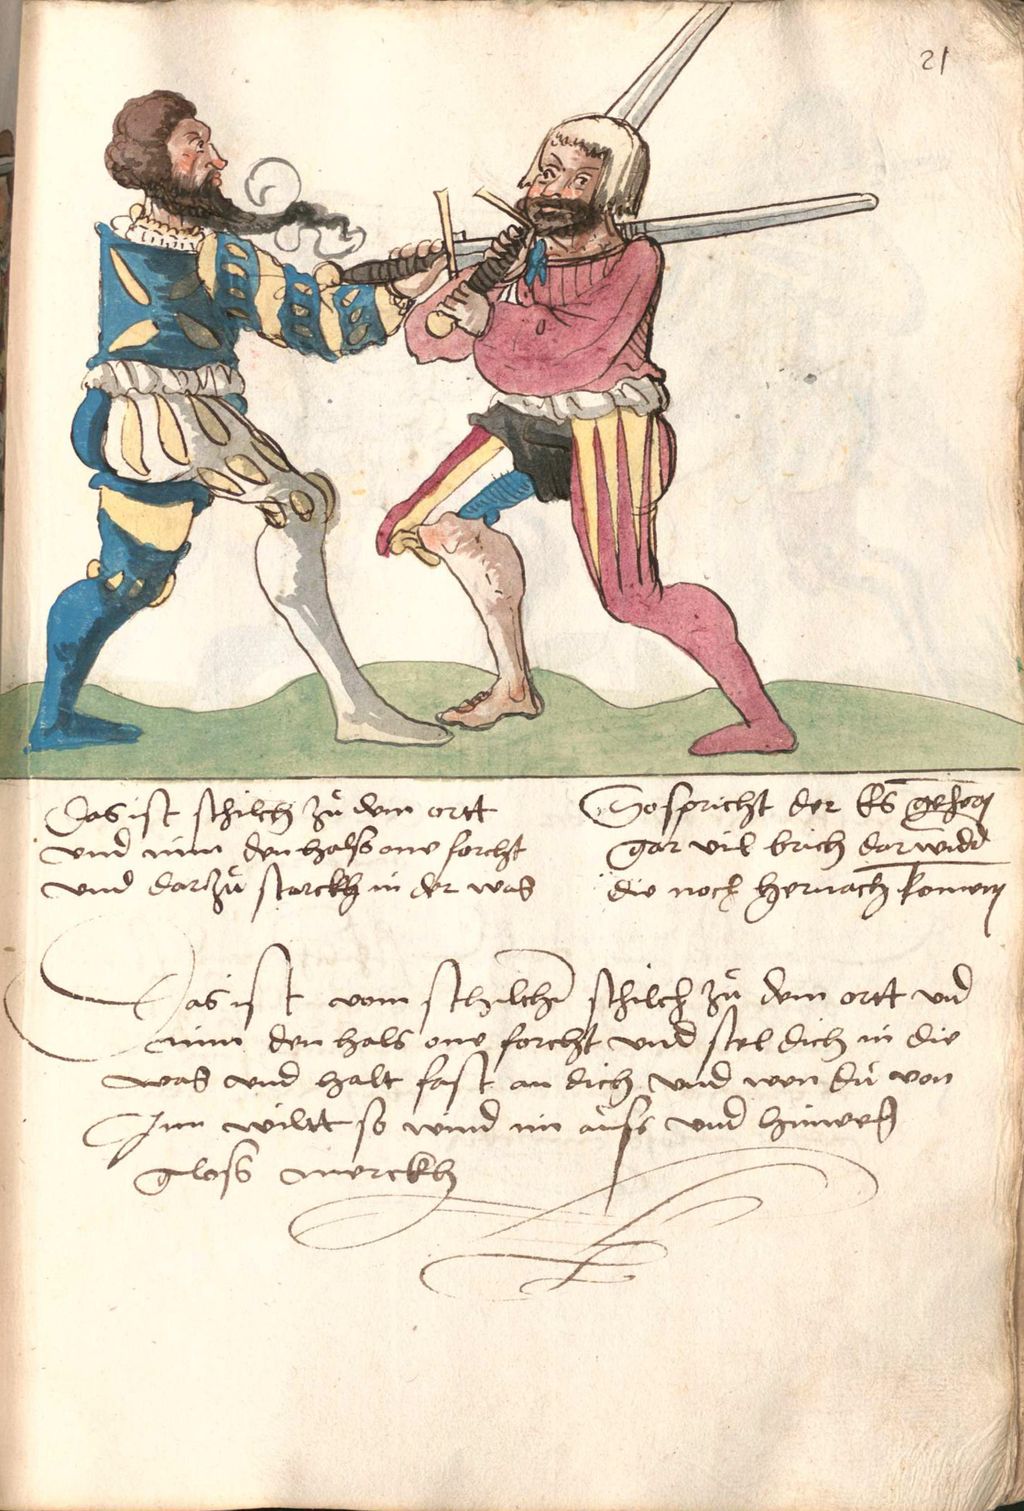 21
Das ist schilch zů dem ortt
vnd nim den halss one forcht
vnd darzů starckh in der was
So spricht der
gar vil brich dar widd
die noch hernach komen
Das ist vom schilchē schilch zů dem ortt vnd
nim den hals one forcht vnd stel dich in die
was vnd halt fast an dich vnd wen dů von
Im wiltt so wind im aůss vnd hinweg
gloss merckh